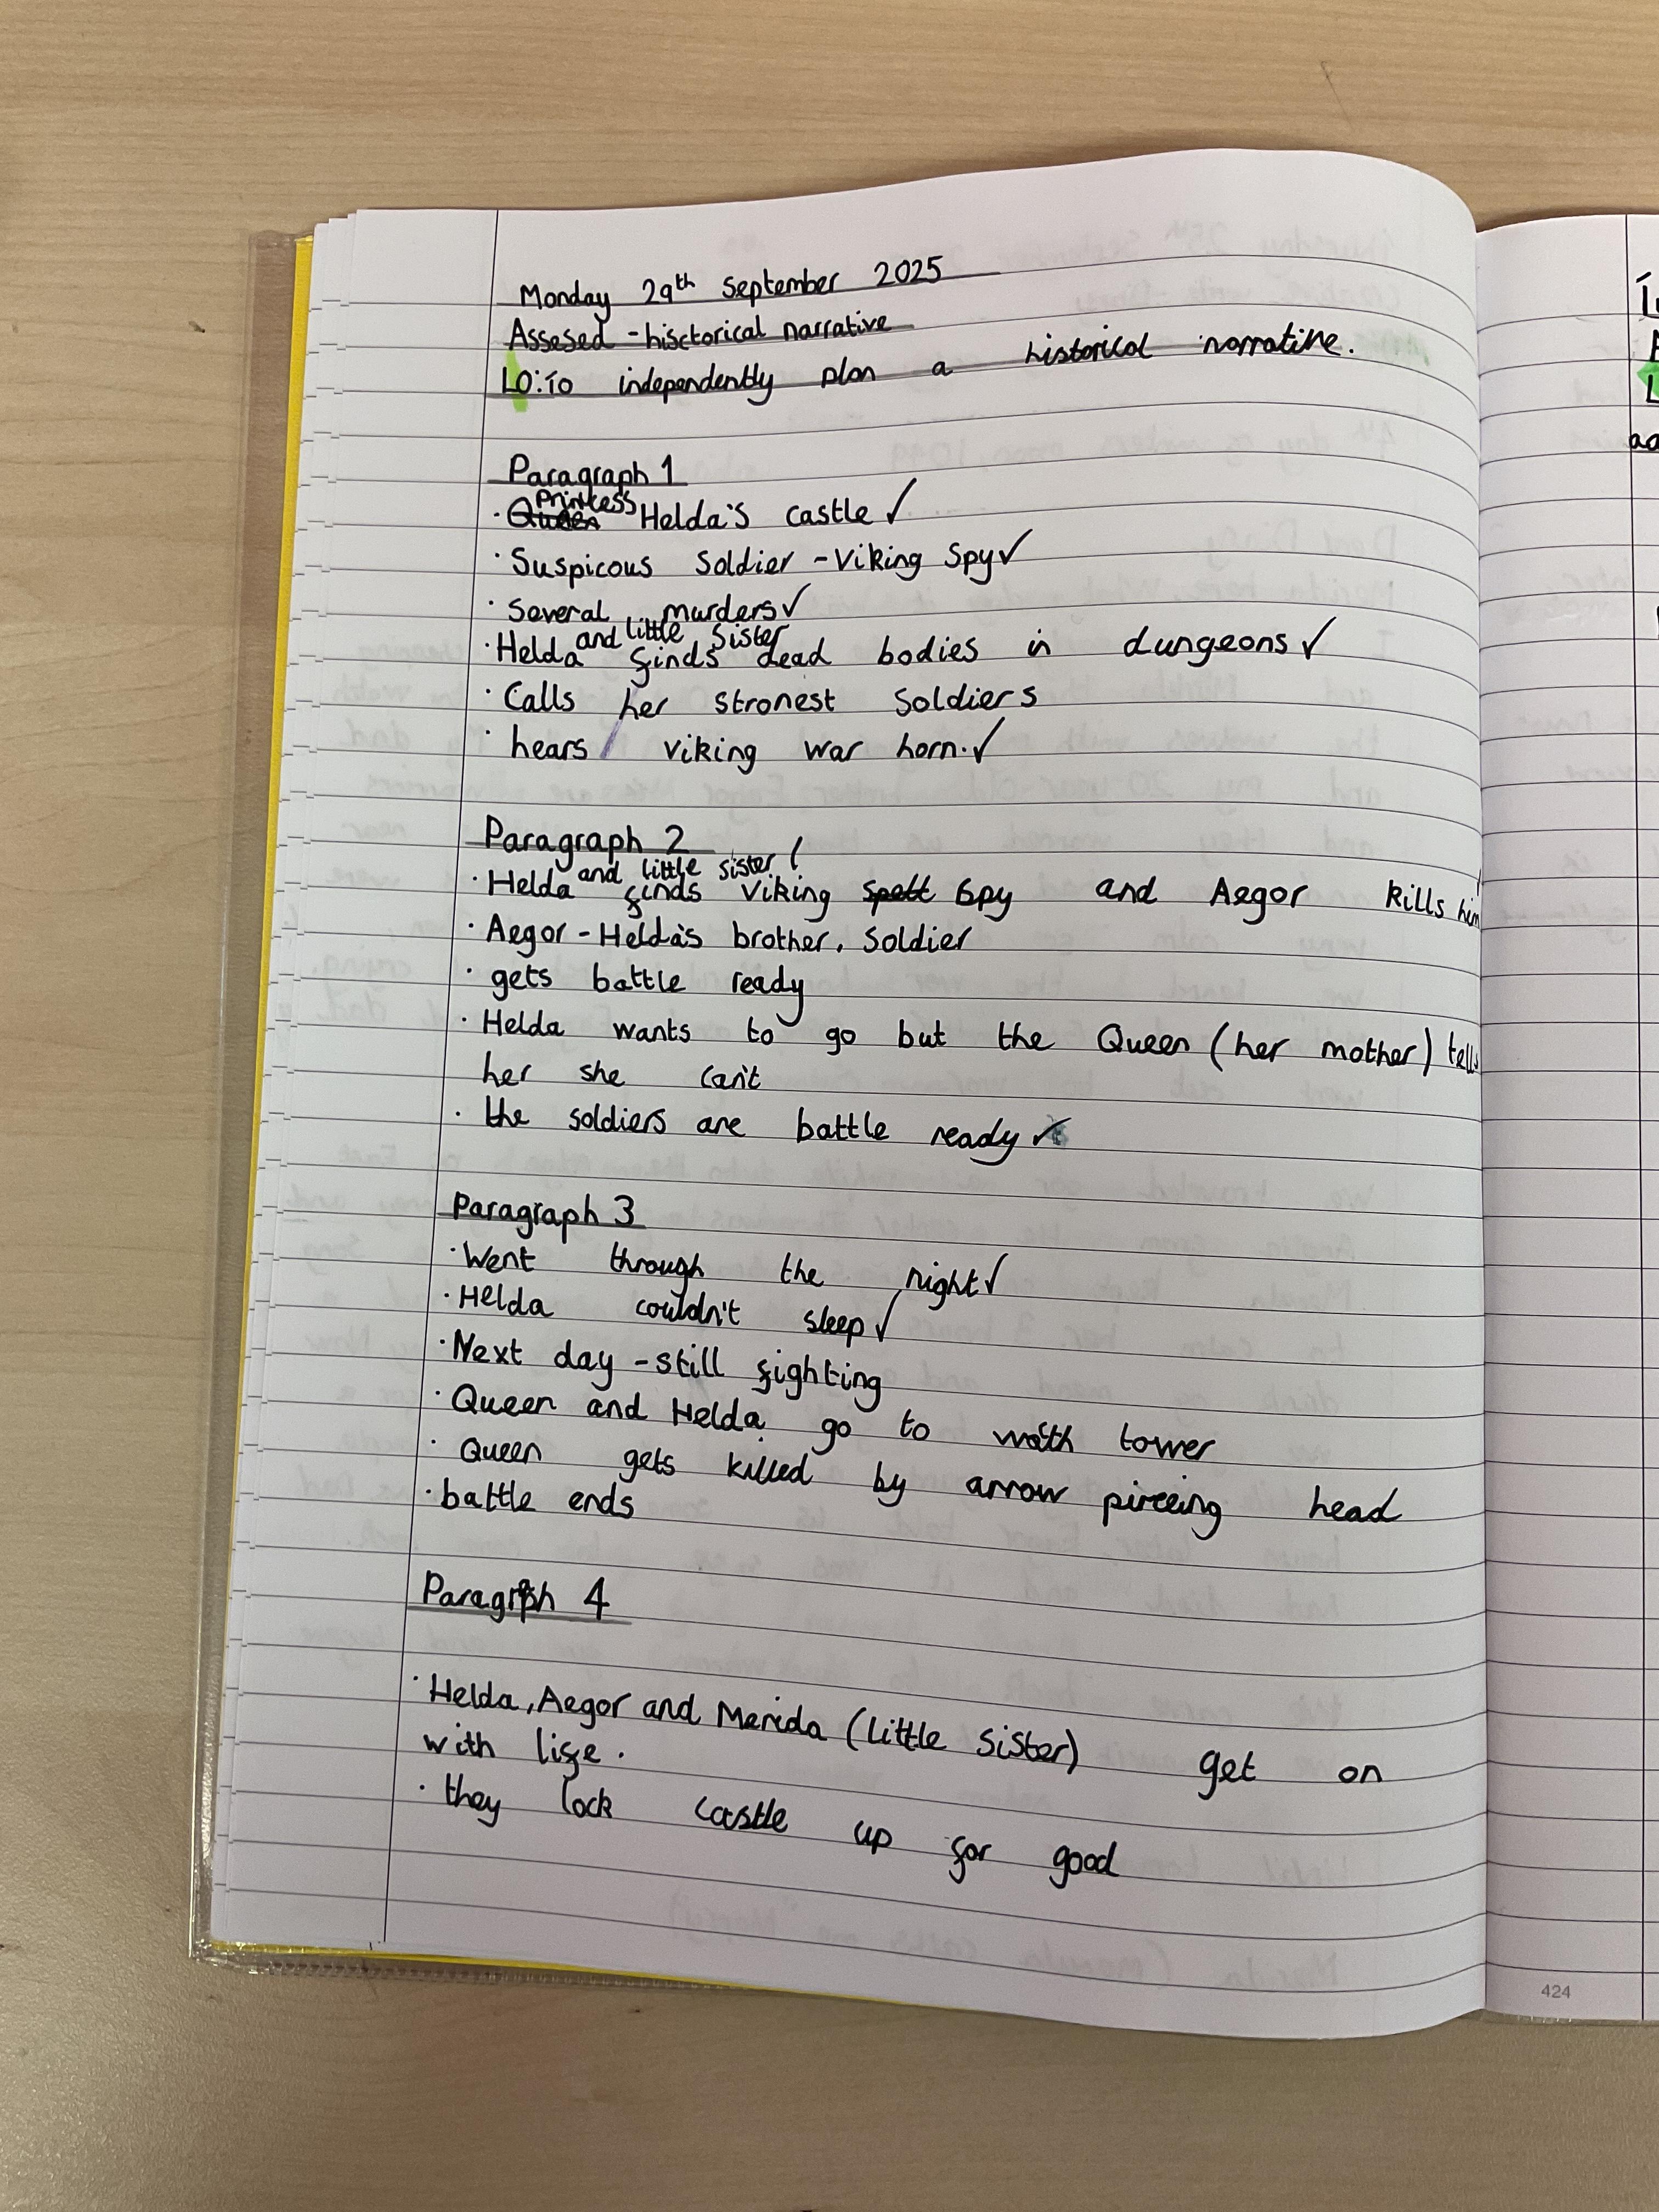 Monday 29th September 2025
Assesed - hisctorical narrative
LO: To independently plan a historical narrative.
Paragraph 1
· Queen Princess Helda's castle ✓
· Suspicous soldier - Viking Spy ✓
· Several murders ✓
· Helda and little sister finds dead bodies in dungeons ✓
· Calls her stronest soldiers
· hears viking war horn. ✓
Paragraph 2
· Helda and little sister finds viking spy and Aegor kills him
· Aegor - Helda's brother, soldier
· gets battle ready
· Helda wants to go but the Queen (her mother) tells
her she can't
· the soldiers are battle ready ✓
Paragraph 3
· Went through the night ✓
· Helda couldn't sleep ✓
· Next day - still fighting
· Queen and Helda go to wath tower
· Queen gets killed by arrow pirceing head
· battle ends
Paragraph 4
· Helda, Aegor and Merida (little sister) get on
with life.
· they lock castle up for good
424